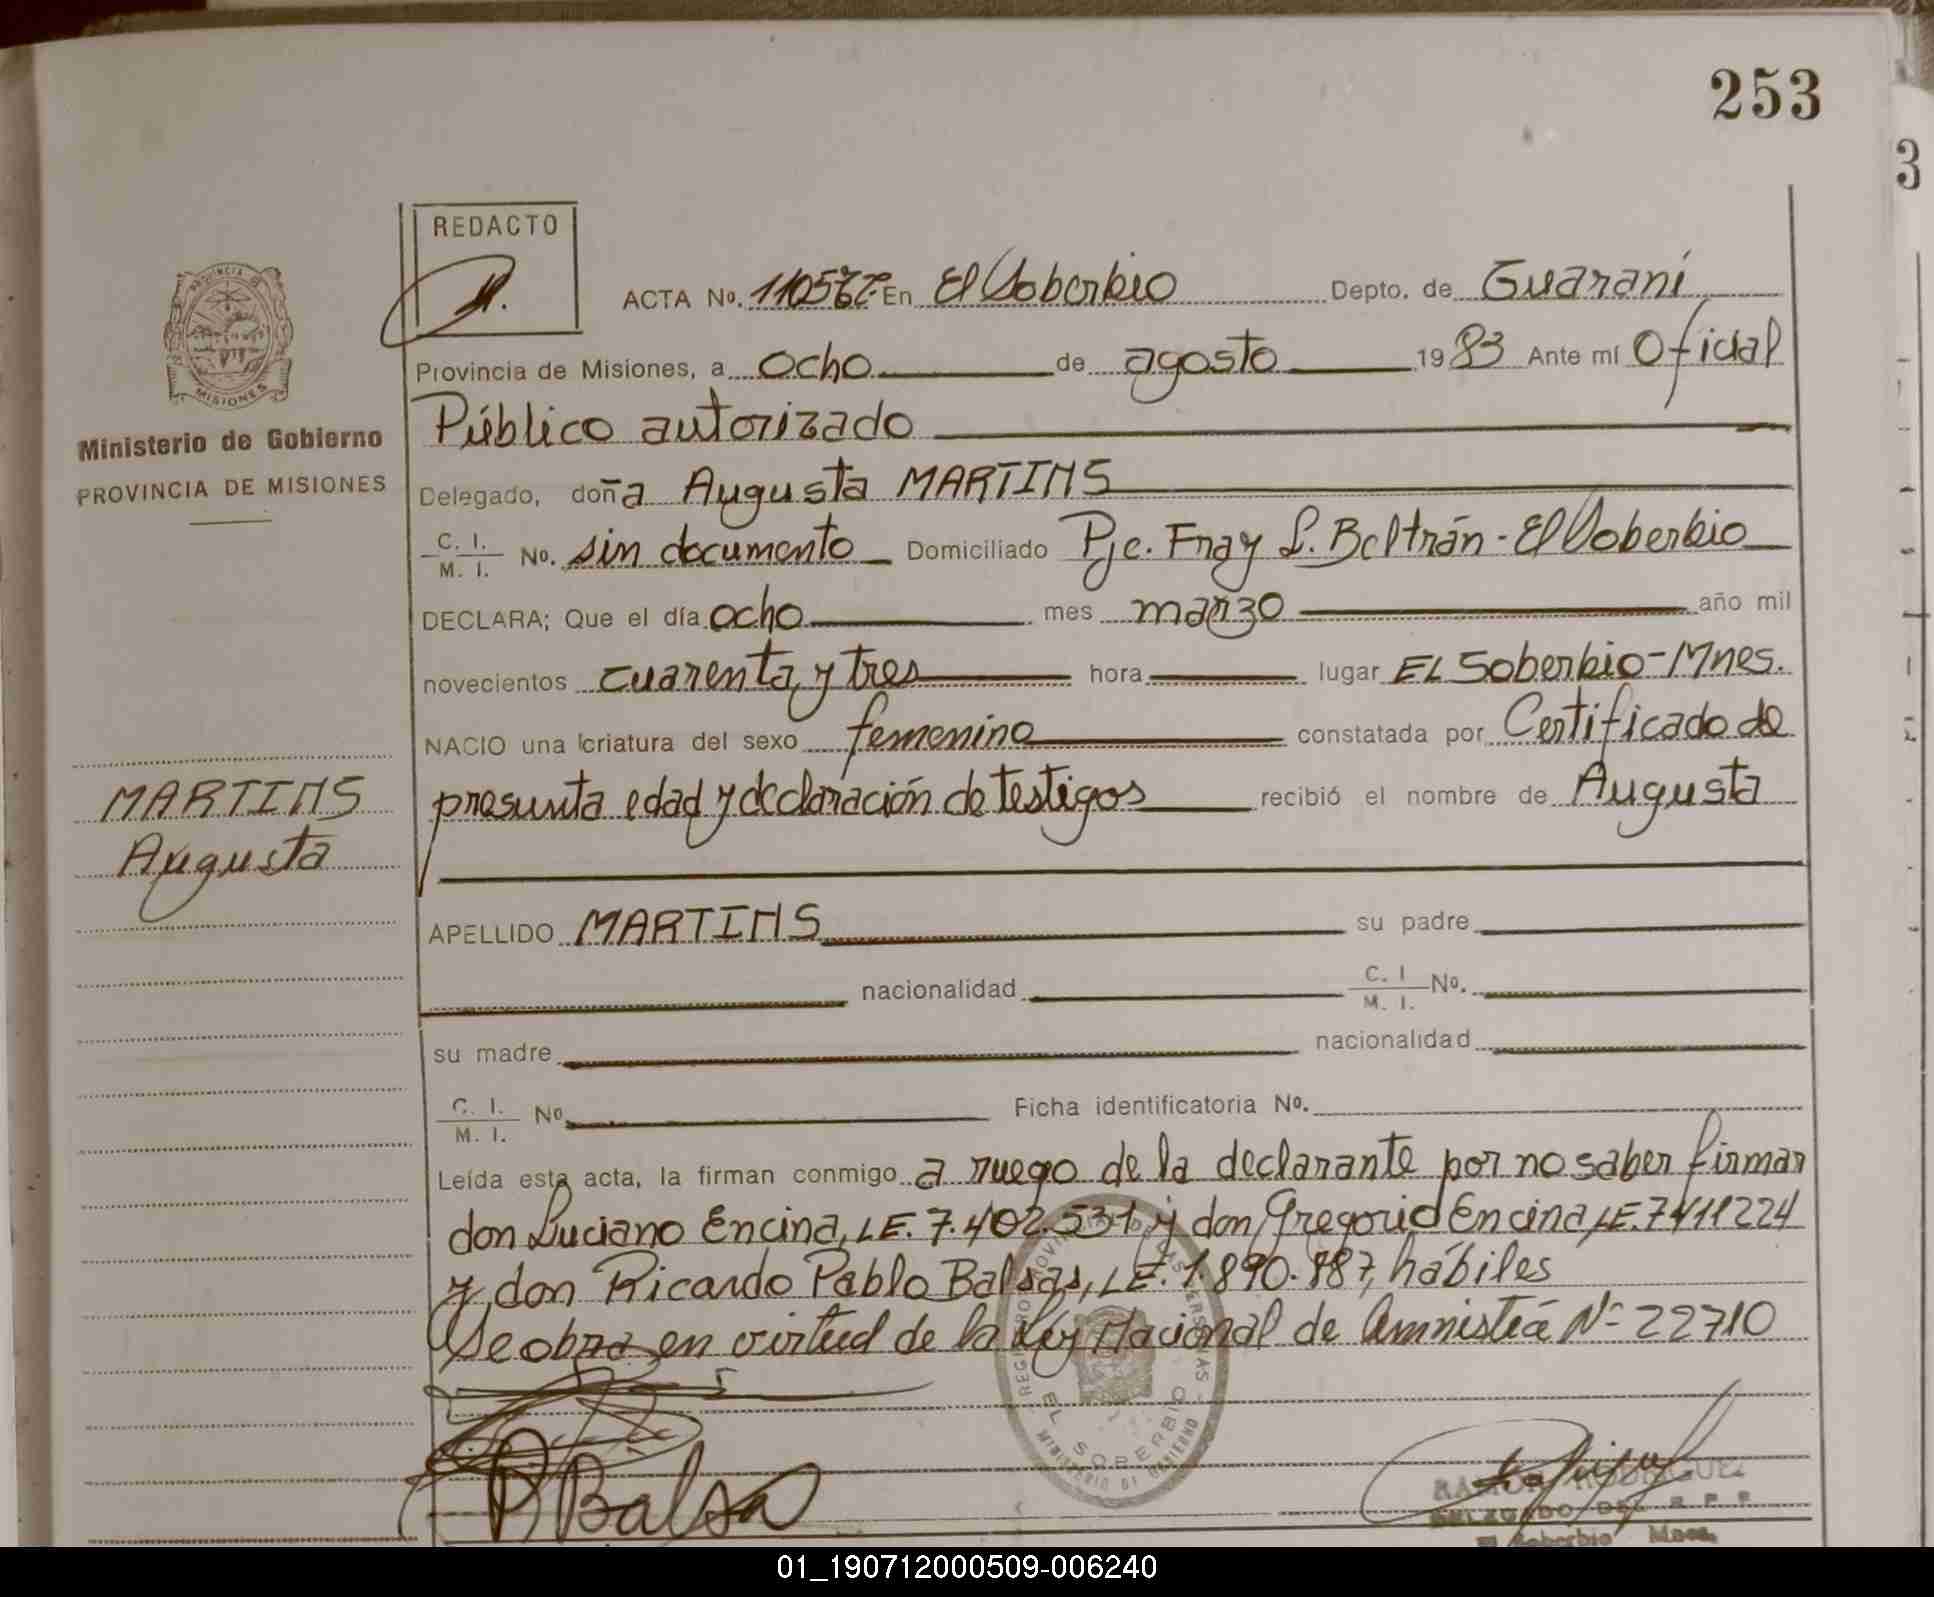 253
3
REDACTO
ACTA No. En El Soberbio Depto. de Guaraní
Provincia de Misiones, a ocho de agosto 1983 Ante mí Oficial
Público autorizado
Ministerio de Gobierno
PROVINCIA DE MISIONES
Delegado, doña Augusta MARTINS
C. I.
M. I. No. sin documento Domiciliado Pje. Fray L. Beltrán - El Soberbio
DECLARA; Que el día ocho mes marzo año mil
novecientos cuarenta y tres hora lugar EL Soberbio - Mnes.
NACIO una criatura del sexo femenino constatada por Certificado de
presunta edad y declaración de testigos recibió el nombre de Augusta
MARTINS
Augusta
APELLIDO MARTINS su padre
nacionalidad C. I.
M. I. No.
su madre nacionalidad
C. I.
M. I. No Ficha identificatoria No.
Leída esta acta, la firman conmigo a ruego de la declarante por no saber firmar
don Luciano Encina, LE. 7.402.531 y don Gregorio Encina, LE. 7411224
y don Ricardo Pablo Balsas, LE. 1.890.887, hábiles
Se obra en virtud de la Ley Nacional de Amnistía Nº 22710
EL SOBERBIO
MINISTERIO DE GOBIERNO
Balsa
RAMON RODRIGUEZ
DELEGADO DEL R P P
El Soberbio Mnes.
01_190712000509-006240